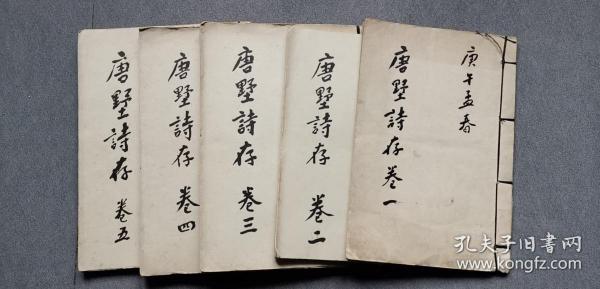 庚午孟春
唐墅詩存 卷一
唐墅詩存 卷二
唐墅詩存 卷三
唐墅詩存 卷四
唐墅詩存 卷五
孔夫子旧书网
www.kongfz.com